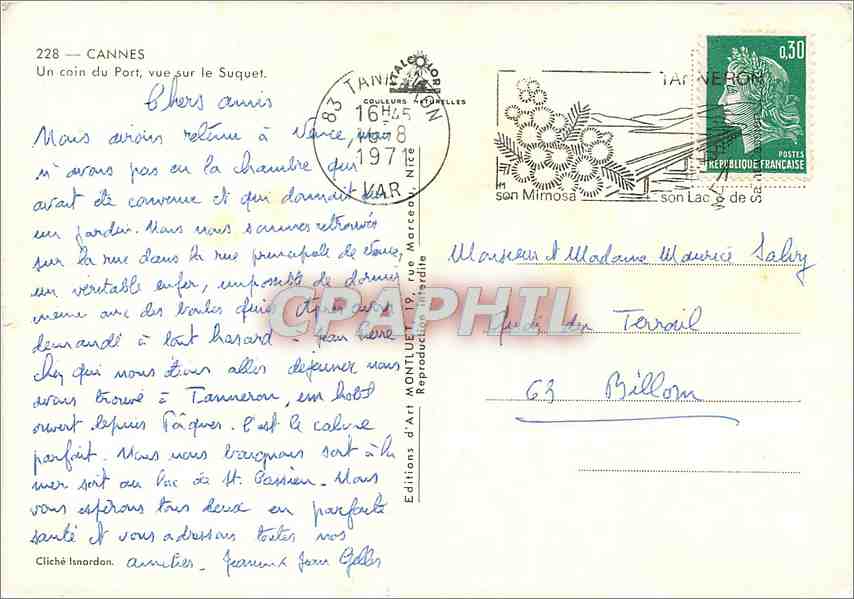 228 — CANNES
Un coin du Port, vue sur le Suquet.
Chers amis
Nous avions retenu à Vence, nous
n'avons pas eu la chambre qui
avait été convenue et qui donnait sur
un jardin. Nous nous sommes retrouvés
sur la rue dans la rue principale de Vence,
un véritable enfer, impossible de dormir
même avec des boules quies. Après avoir
demandé à tout hasard à Jean Pierre
chez qui nous étions allés déjeuner nous
avons trouvé à Tanneron, un hôtel
ouvert depuis Pâques. C'est le calme
parfait. Nous nous baignons soit à la
mer soit au lac de St. Cassien. Nous
vous espérons tous deux en parfaite
santé et vous adressons toutes nos
amitiés. Jean
Cliché Isnardon.
COULEURS NATURELLES
83 TANNERON
16H45
-8
1971
VAR
TANNERON
son Mimosa
son Lac de
0,30
POSTES
REPUBLIQUE FRANÇAISE
Editions d'Art MONTLUET, 19, rue Marceau, Nice
Reproduction interdite
CPAPHIL
Monsieur et Madame Maurice
du Terrail
63 Billom